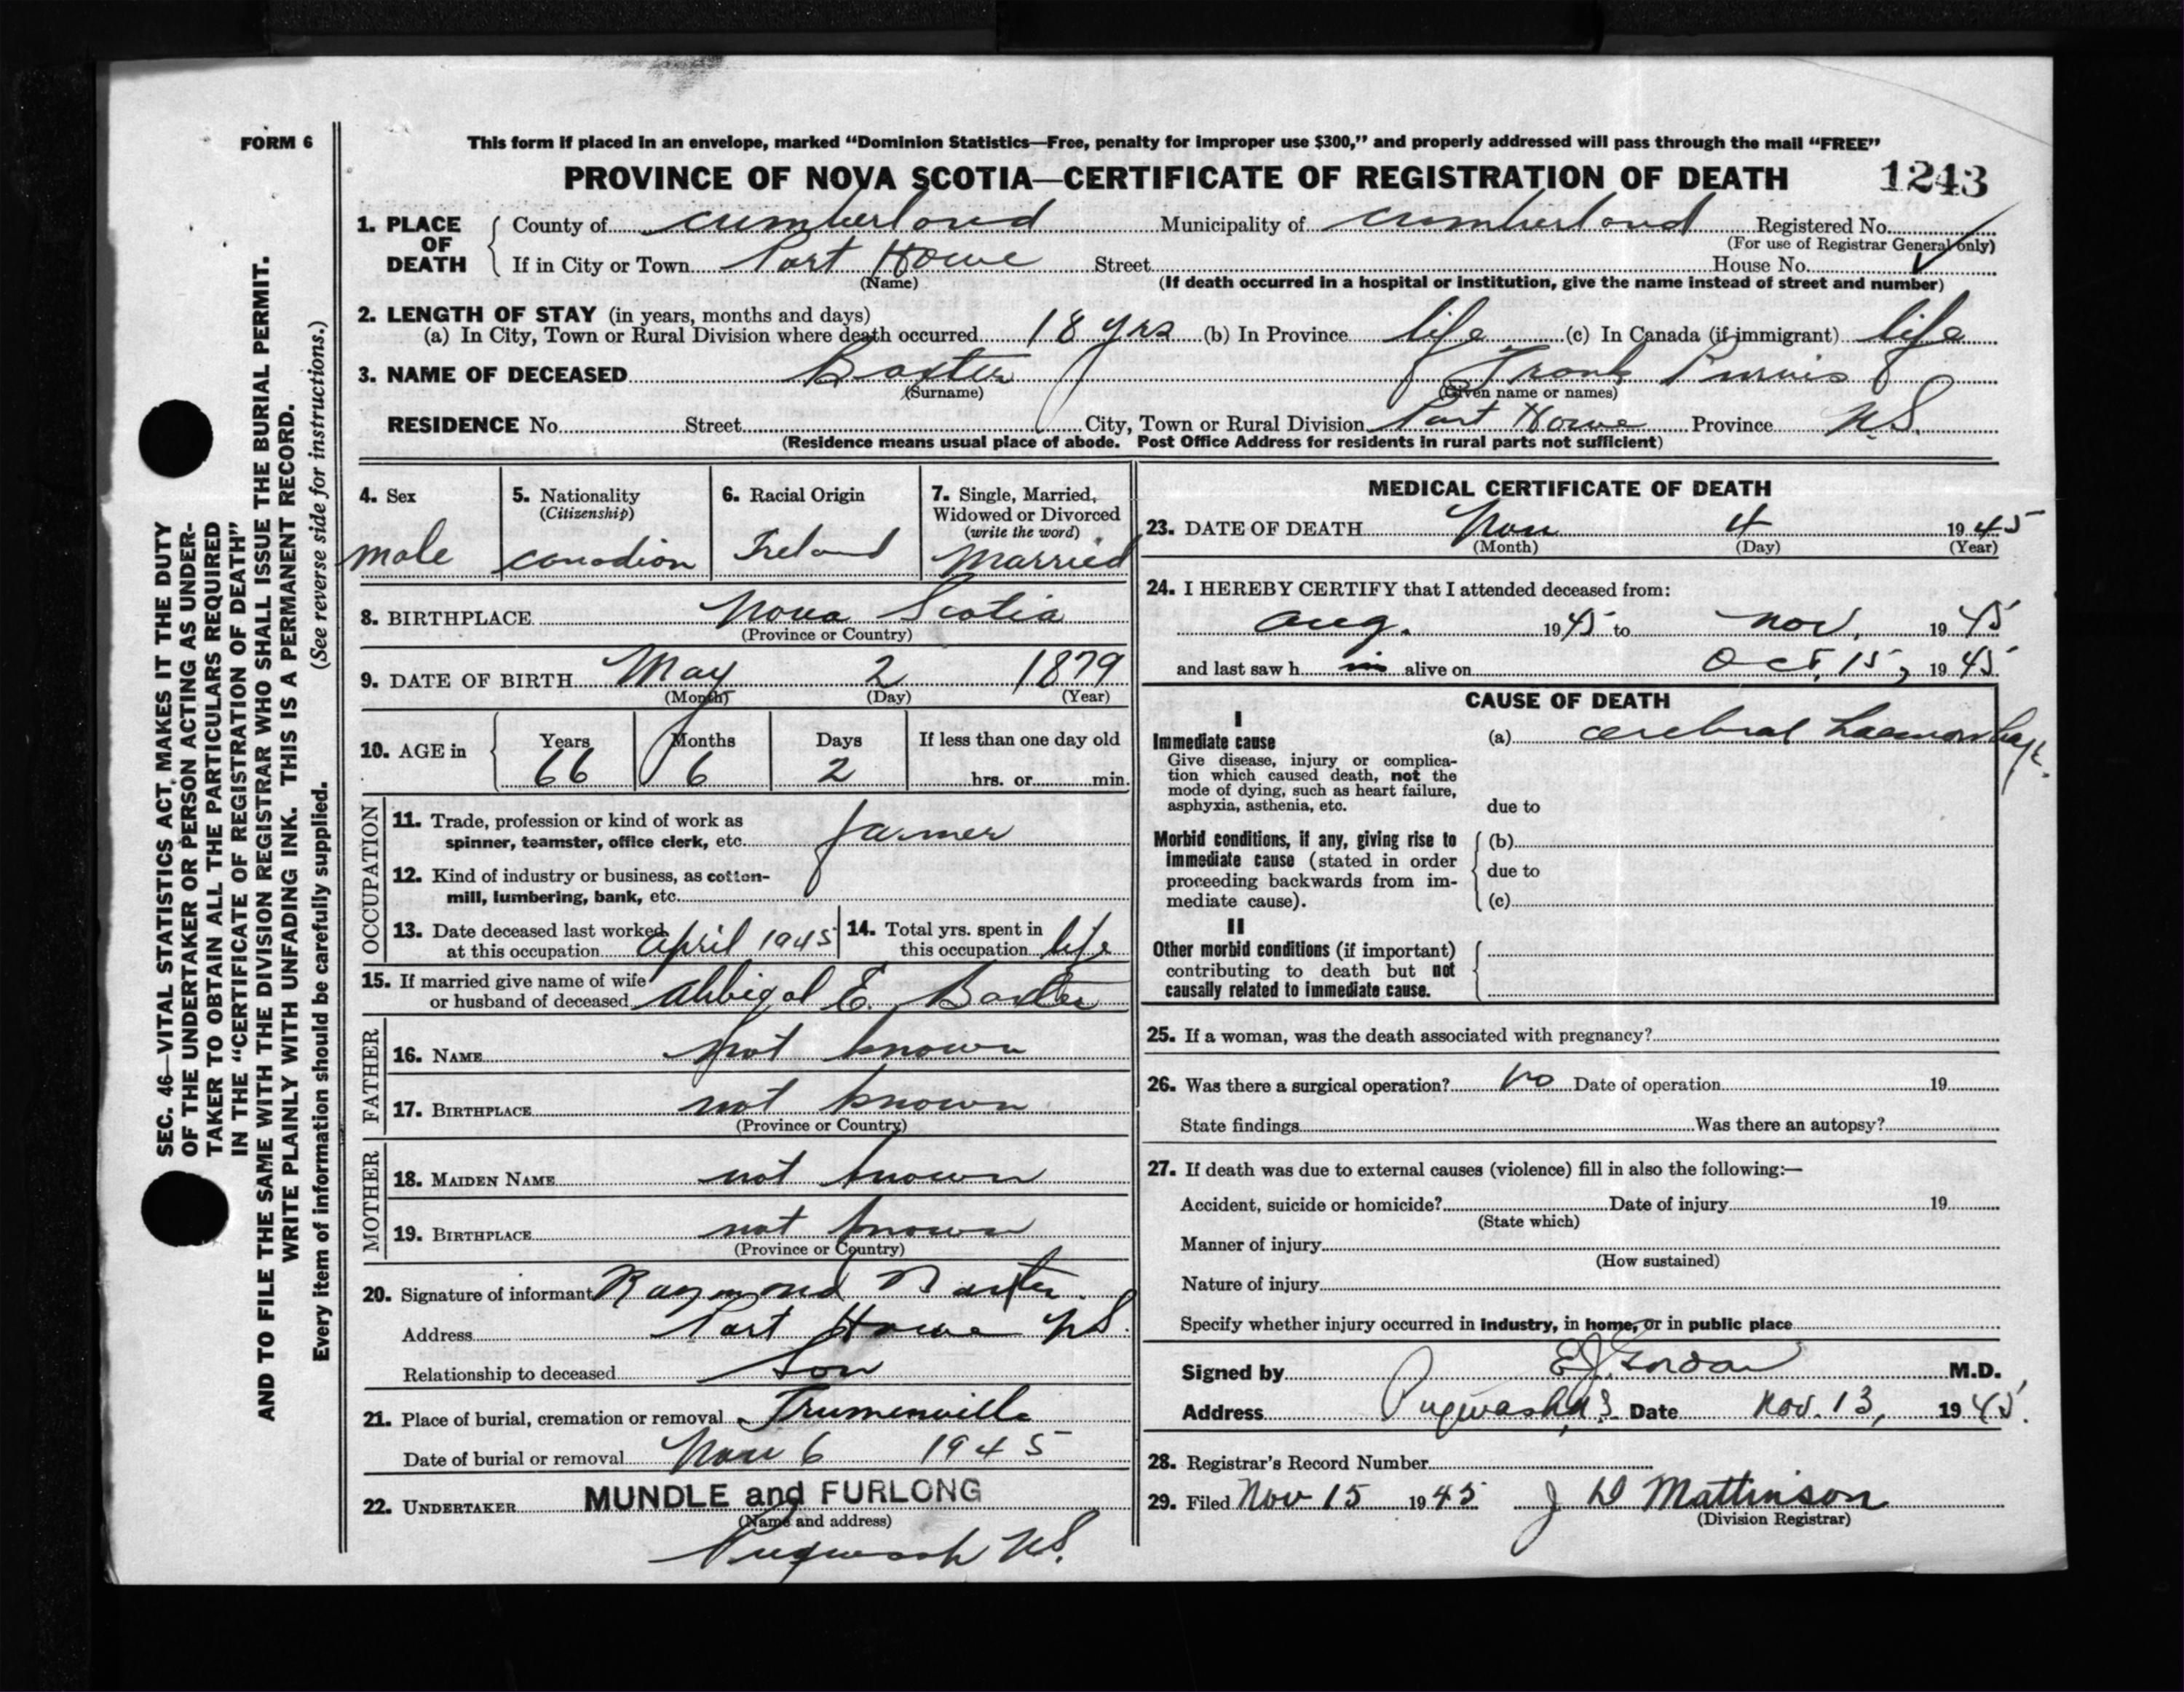 FORM 6
This form if placed in an envelope, marked “Dominion Statistics—Free, penalty for improper use $300,” and properly addressed will pass through the mail “FREE”
PROVINCE OF NOVA SCOTIA—CERTIFICATE OF REGISTRATION OF DEATH 1243
1. PLACE OF DEATH County of cumberland Municipality of cumberland Registered No.
(For use of Registrar General only)
If in City or Town Port Howe Street House No.
(Name) (If death occurred in a hospital or institution, give the name instead of street and number)
2. LENGTH OF STAY (in years, months and days)
(a) In City, Town or Rural Division where death occurred 18 yrs (b) In Province life (c) In Canada (if immigrant) life
3. NAME OF DECEASED Baxter Frank Purvis
(Surname) (Given name or names)
RESIDENCE No. Street City, Town or Rural Division Port Howe Province N.S.
(Residence means usual place of abode. Post Office Address for residents in rural parts not sufficient)
4. Sex
male
5. Nationality
(Citizenship)
canadian
6. Racial Origin
Ireland
7. Single, Married,
Widowed or Divorced
(write the word)
Married
8. BIRTHPLACE Nova Scotia
(Province or Country)
9. DATE OF BIRTH May 2 1879
(Month) (Day) (Year)
10. AGE in Years Months Days If less than one day old
66 6 2 hrs. or min.
OCCUPATION
11. Trade, profession or kind of work as
spinner, teamster, office clerk, etc. farmer
12. Kind of industry or business, as cotton-
mill, lumbering, bank, etc.
13. Date deceased last worked
at this occupation April 1945
14. Total yrs. spent in
this occupation life
15. If married give name of wife
or husband of deceased Abbigal E. Baxter
FATHER
16. NAME not known
17. BIRTHPLACE not known
(Province or Country)
MOTHER
18. MAIDEN NAME not known
19. BIRTHPLACE not known
(Province or Country)
20. Signature of informant Raymond Baxter
Address Port Howe NS.
Relationship to deceased Son
21. Place of burial, cremation or removal
Date of burial or removal Nov 6 1945
22. UNDERTAKER MUNDLE and FURLONG
(Name and address)
Pugwash N.S.
MEDICAL CERTIFICATE OF DEATH
23. DATE OF DEATH Nov 4 1945
(Month) (Day) (Year)
24. I HEREBY CERTIFY that I attended deceased from:
Aug. 1945 to Nov. 1945
and last saw h im alive on Oct. 15, 1945
CAUSE OF DEATH
I
Immediate cause (a) cerebral haemorrhage.
Give disease, injury or complica-
tion which caused death, not the
mode of dying, such as heart failure,
asphyxia, asthenia, etc. due to
Morbid conditions, if any, giving rise to (b)
immediate cause (stated in order
proceeding backwards from im- due to
mediate cause). (c)
II
Other morbid conditions (if important)
contributing to death but not
causally related to immediate cause.
25. If a woman, was the death associated with pregnancy?
26. Was there a surgical operation? no Date of operation 19
State findings Was there an autopsy?
27. If death was due to external causes (violence) fill in also the following:—
Accident, suicide or homicide? Date of injury 19
(State which)
Manner of injury
(How sustained)
Nature of injury
Specify whether injury occurred in industry, in home, or in public place
Signed by E J Gordon M.D.
Address Pugwash, N.S. Date Nov. 13, 1945.
28. Registrar's Record Number
29. Filed Nov 15 1945 J D Mattinson
(Division Registrar)
SEC. 46—VITAL STATISTICS ACT, MAKES IT THE DUTY
OF THE UNDERTAKER OR PERSON ACTING AS UNDER-
TAKER TO OBTAIN ALL THE PARTICULARS REQUIRED
IN THE “CERTIFICATE OF REGISTRATION OF DEATH”
AND TO FILE THE SAME WITH THE DIVISION REGISTRAR WHO SHALL ISSUE THE BURIAL PERMIT.
WRITE PLAINLY WITH UNFADING INK. THIS IS A PERMANENT RECORD.
Every item of information should be carefully supplied. (See reverse side for instructions.)